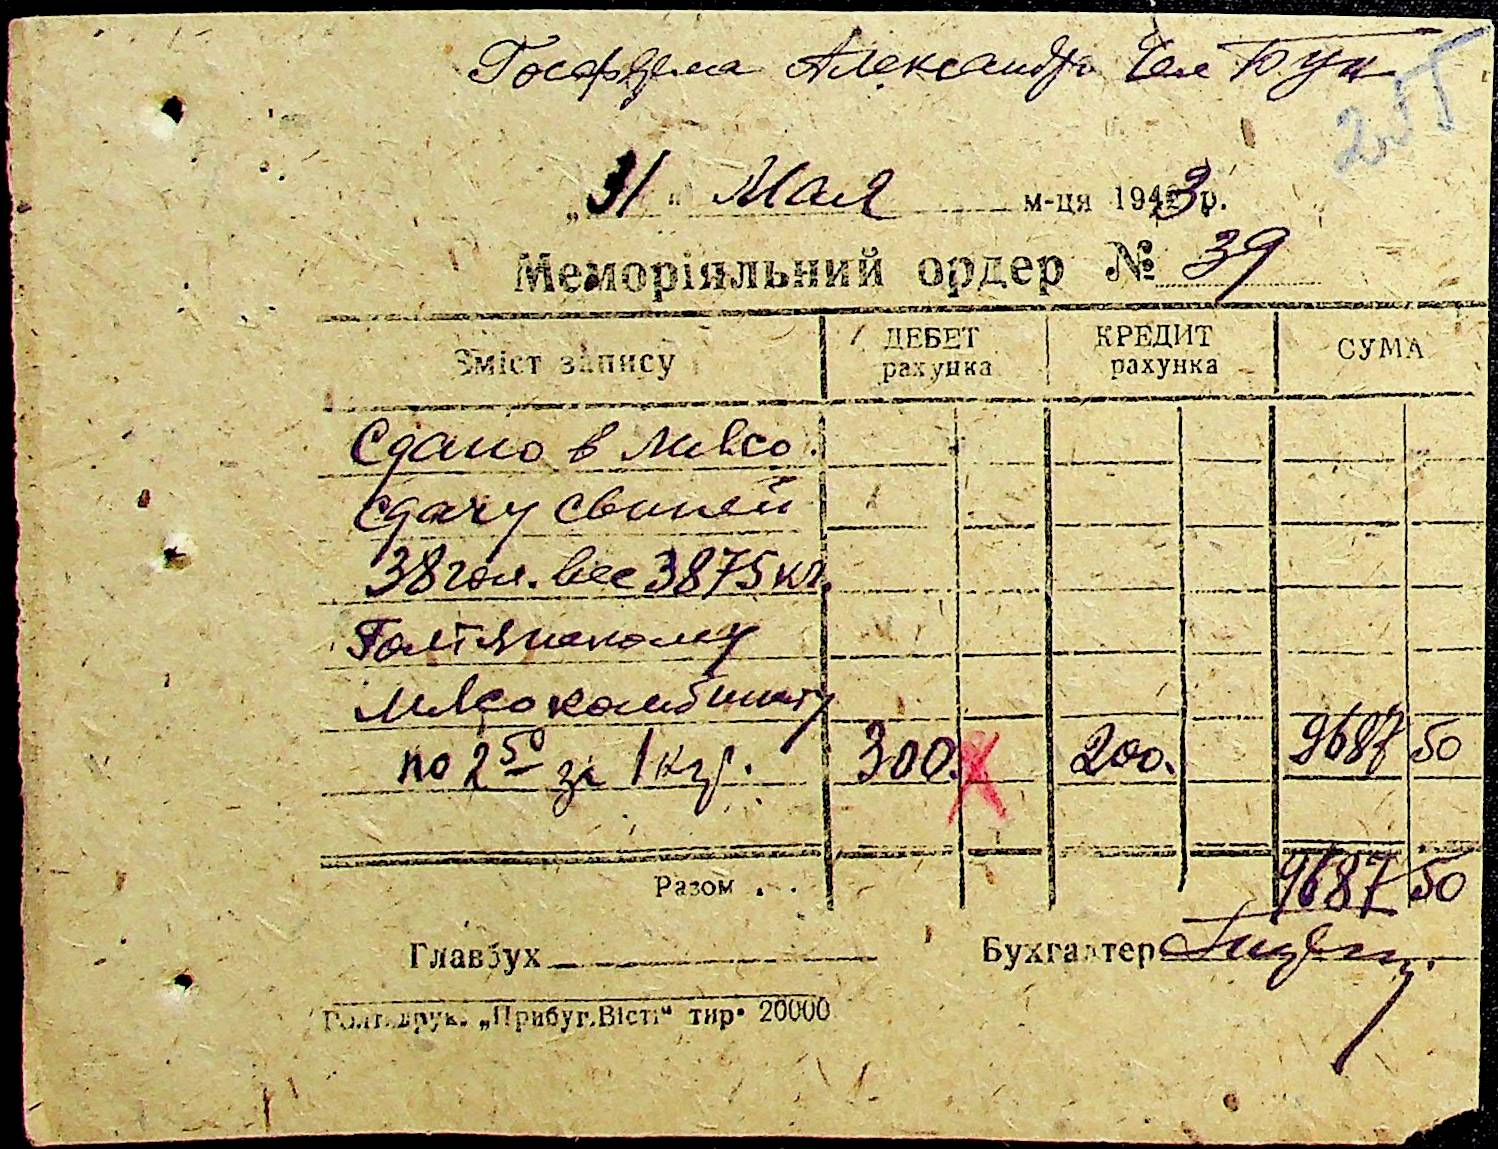 Госферма Александру Чел Бун
"31" Мая м-ця 1943 р.
Меморіяльний ордер № 39
Зміст запису ДЕБЕТ рахунка КРЕДИТ рахунка СУМА
Сдано в мясо
сдачу свиней
38 гол. вес 3875 кг.
Голтянскому
мясокомбинату
по 2 50 за 1 кгр. 300. 200. 9687 50
Разом . . 9687 50
Главбух Бухгалтер
Голт. друк. „Прибуг.Вісті" тир. 20000